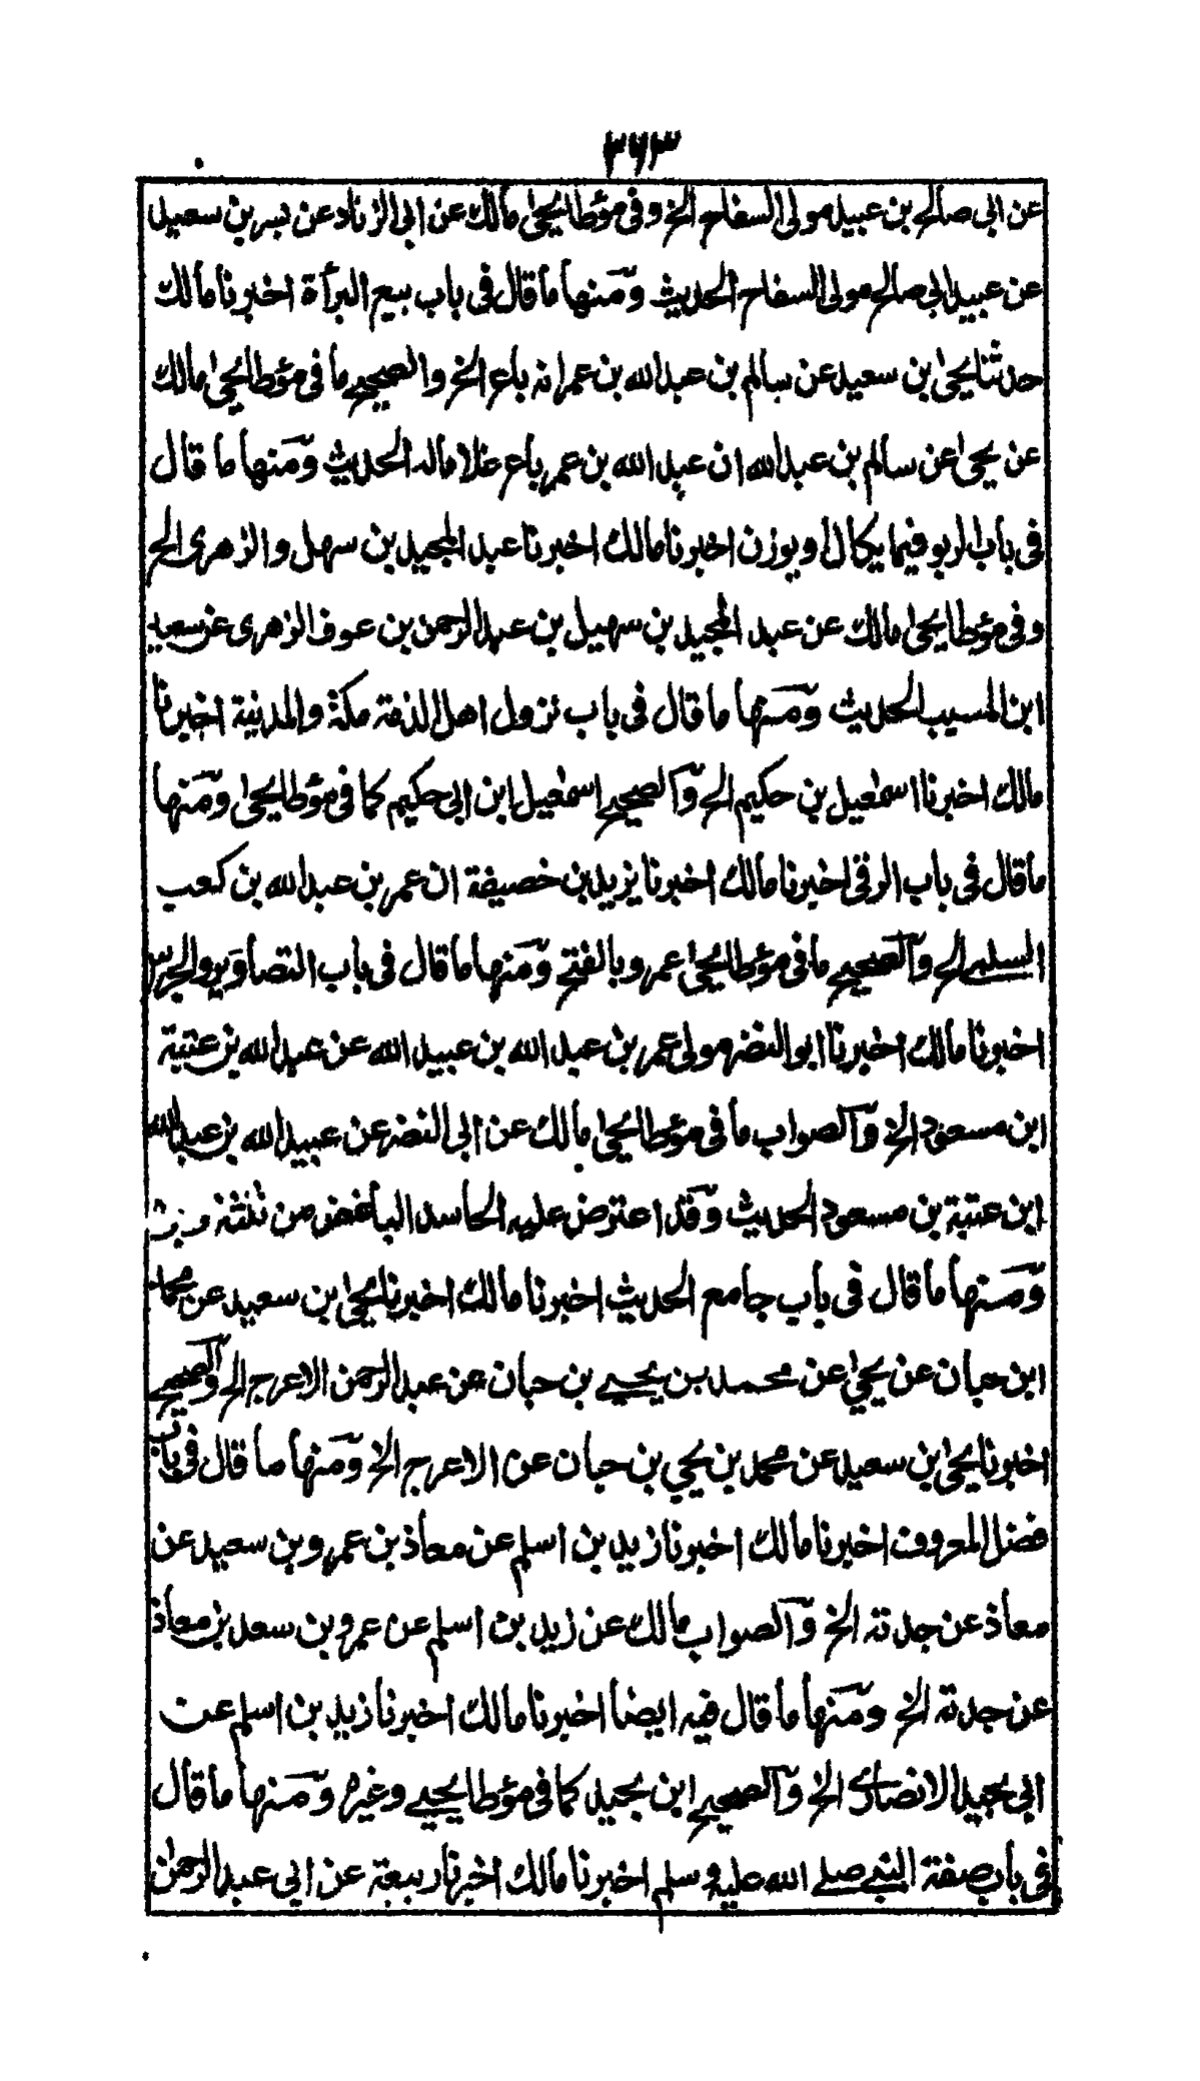 ٣٦٣
عن ابی صالح بن عبید مولی السفاح الخ وفی مؤطا یحیٰی مالك عن ابی الزناد عن بسر بن سعید
عن عبید ابی صالح مولی السفاح الحدیث ومنها ما قال فی باب بیع البرأة اخبرنا مالك
حدثنا یحیٰی بن سعید عن سالم بن عبد الله بن عمر انه باع الخ والصحیح ما فی مؤطا یحیٰی مالك
عن یحیٰی عن سالم بن عبد الله ان عبد الله بن عمر باع غلاما له الحدیث ومنها ما قال
فی باب الربو فیما یکال او یوزن اخبرنا مالك اخبرنا عبد المجید بن سهل والزهری الخ
وفی مؤطا یحیٰی مالك عن عبد المجید بن سهیل بن عبد الرحمن بن عوف الزهری عن سعید
ابن المسیب الحدیث ومنها ما قال فی باب نزول اهل الذمة مکة والمدینة اخبرنا
مالك اخبرنا اسمٰعیل بن حکیم الخ والصحیح اسمٰعیل ابن ابی حکیم کما فی مؤطا یحیٰی ومنها
ما قال فی باب الرقی اخبرنا مالك اخبرنا یزید بن خصیفة ان عمر بن عبد الله بن کعب
السلمی الخ والصحیح ما فی مؤطا یحیٰی عمرو بالفتح ومنها ما قال فی باب التصاویر والجرس
اخبرنا مالك اخبرنا ابو النضر مولی عمر بن عبد الله بن عبید الله عن عبد الله بن عتبة
ابن مسعود الخ والصواب ما فی مؤطا یحیٰی مالك عن ابی النضر عن عبید الله بن عبد الله
ابن عتبة بن مسعود الحدیث وقد اعترض علیه الحاسد الباغض من ثلثة
ومنها ما قال فی باب جامع الحدیث اخبرنا مالك اخبرنا یحیٰی بن سعید عن محمد
ابن حبان عن یحیٰی عن محمد بن یحیی بن حبان عن عبد الرحمن الاعرج الخ والصحیح
اخبرنا یحیٰی بن سعید عن محمد بن یحیی بن حبان عن الاعرج الخ ومنها ما قال فی باب
فضل المعروف اخبرنا مالك اخبرنا زید بن اسلم عن معاذ بن عمرو بن سعید عن
معاذ عن جدته الخ والصواب مالك عن زید بن اسلم عن عمرو بن سعد بن معاذ
عن جدته الخ ومنها ما قال فیه ایضا اخبرنا مالك اخبرنا زید بن اسلم عن
ابی بجید الانصاری الخ والصحیح ابن بجید کما فی مؤطا یحیی وغیره ومنها ما قال
فی باب صفة النبی صلی الله علیه وسلم اخبرنا مالك اخبرنا ربیعة عن ابی عبد الرحمٰن